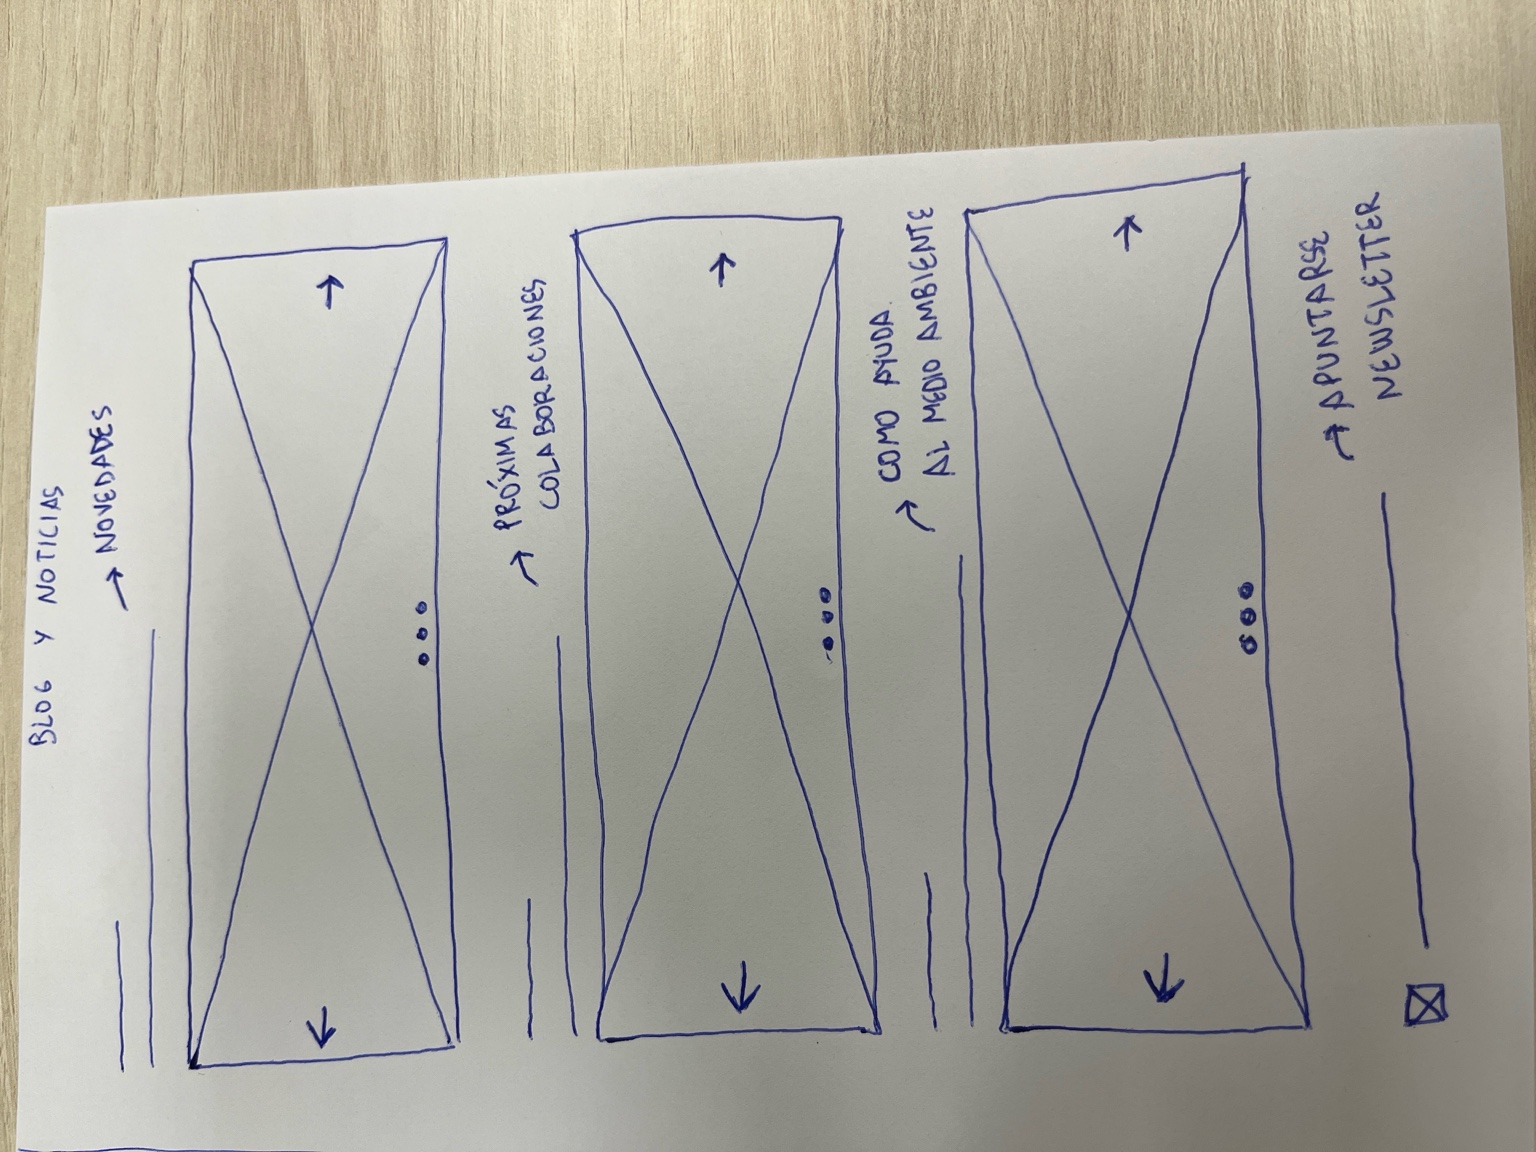 BLOG Y NOTICIAS
→ NOVEDADES
→ PRÓXIMAS
COLABORACIONES
→ COMO AYUDA
AL MEDIO AMBIENTE
→ APUNTARSE
NEWSLETTER